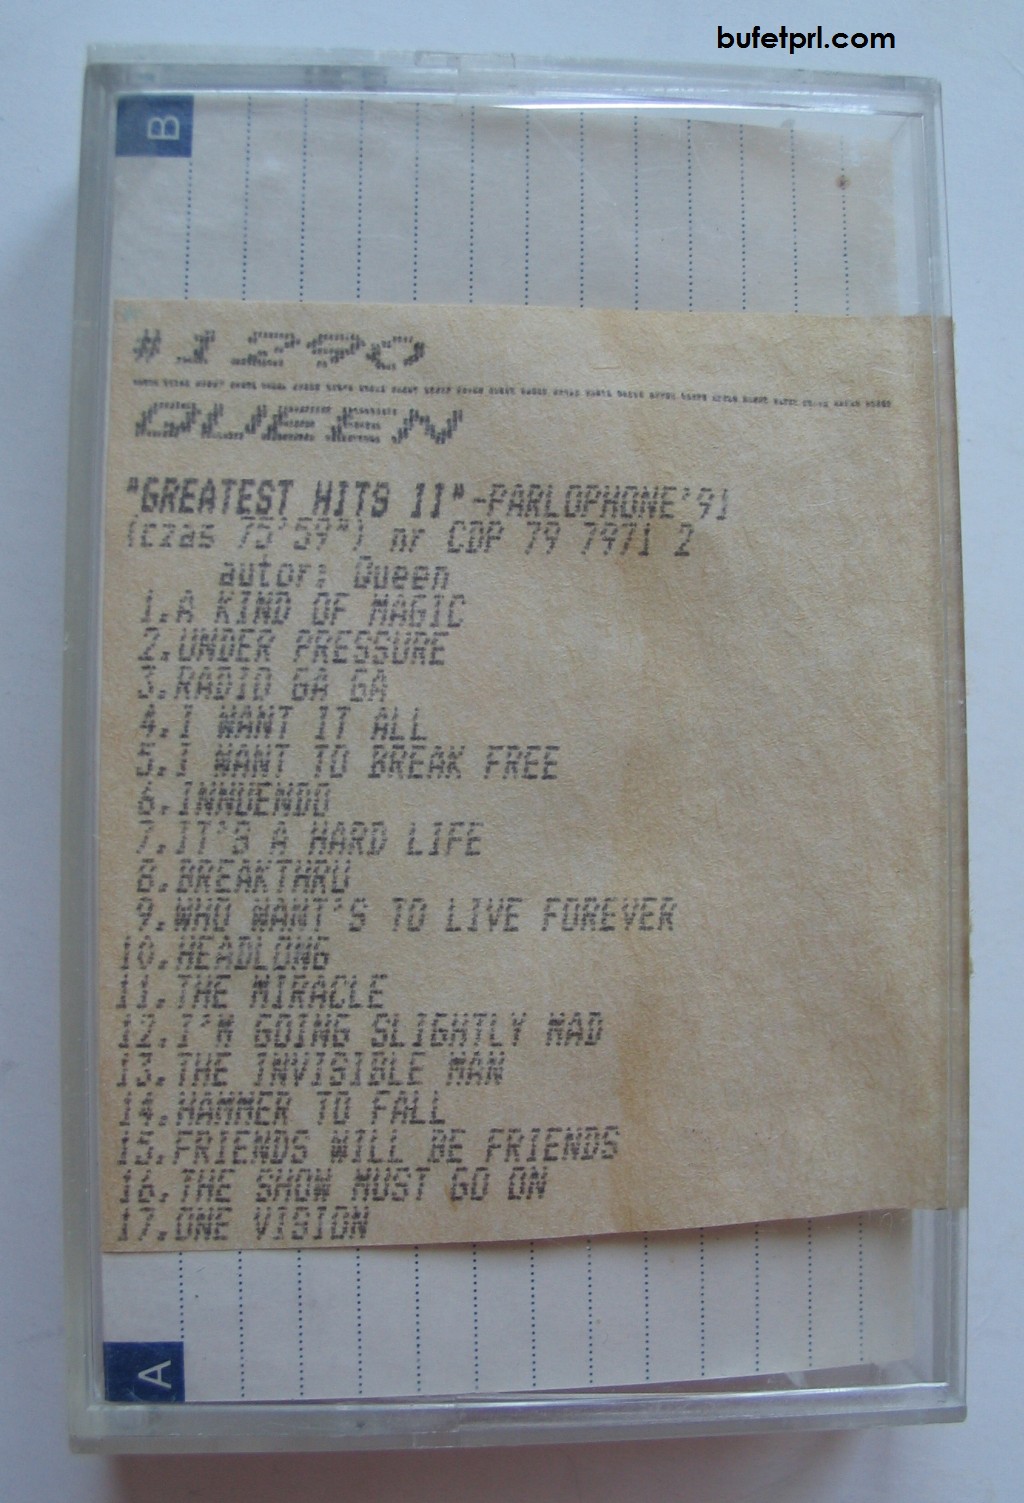 bufetprl.com
B
#1290
QUEEN
"GREATEST HITS II"-PARLOPHONE'91
(czas 75'59") nr CDP 79 7971 2
autor: Queen
1.A KIND OF MAGIC
2.UNDER PRESSURE
3.RADIO GA GA
4.I WANT IT ALL
5.I WANT TO BREAK FREE
6.INNUENDO
7.IT'S A HARD LIFE
8.BREAKTHRU
9.WHO WANT'S TO LIVE FOREVER
10.HEADLONG
11.THE MIRACLE
12.I'M GOING SLIGHTLY MAD
13.THE INVISIBLE MAN
14.HAMMER TO FALL
15.FRIENDS WILL BE FRIENDS
16.THE SHOW MUST GO ON
17.ONE VISION
A